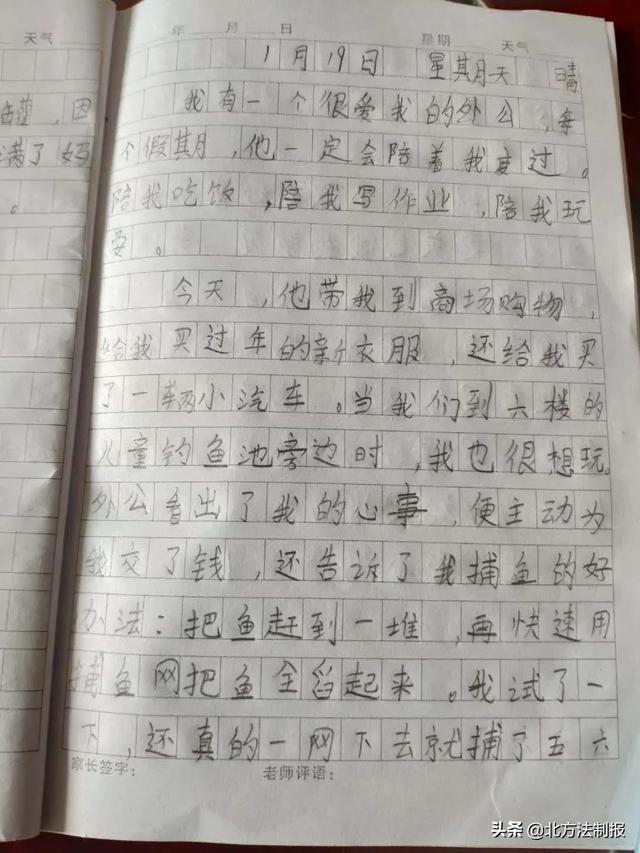 天气
年 月 日 星期 天气
1月19日 星期天 晴
我有一个很爱我的外公，每
因
满了妈
个假期，他一定会陪着我度过。
。
陪我吃饭，陪我写作业，陪我玩
耍。
今天，他带我到商场购物，
给我买过年的新衣服，还给我买
了一辆小汽车。当我们到六楼的
儿童钓鱼池旁边时，我也很想玩。
外公看出了我的心事，便主动为
我交了钱，还告诉了我捕鱼的好
办法：把鱼赶到一堆，再快速用
捕鱼网把鱼全舀起来。我试了一
下，还真的一网下去就捕了五六
家长签字： 老师评语：
头条 @北方法制报